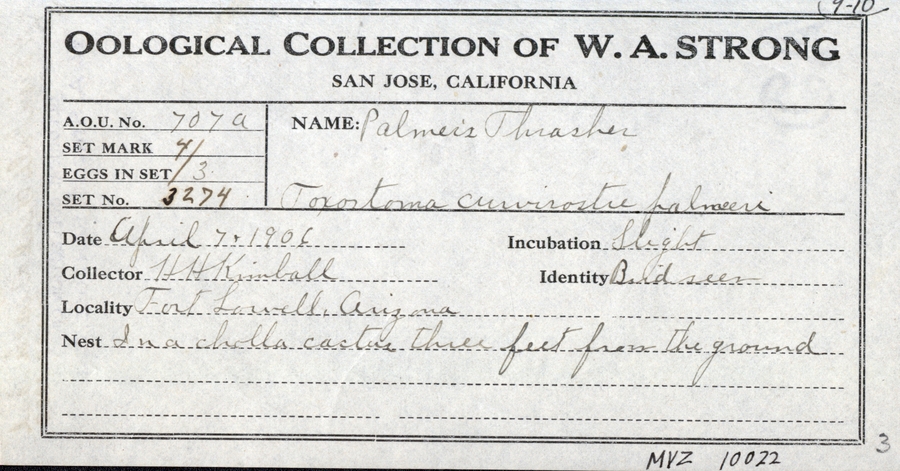 (9-10
OOLOGICAL COLLECTION OF W. A. STRONG
SAN JOSE, CALIFORNIA
A.O.U. No. 707a
SET MARK 4/
EGGS IN SET /3
SET No. 3274
NAME: Palmers Thrasher
Toxostoma curvirostre palmeri
Date April 7, 1906
Incubation Slight
Collector H H Kimball
Identity Bird seen
Locality Fort Lowell, Arizona
Nest In a cholla cactus three feet from the ground
3
MVZ 10022